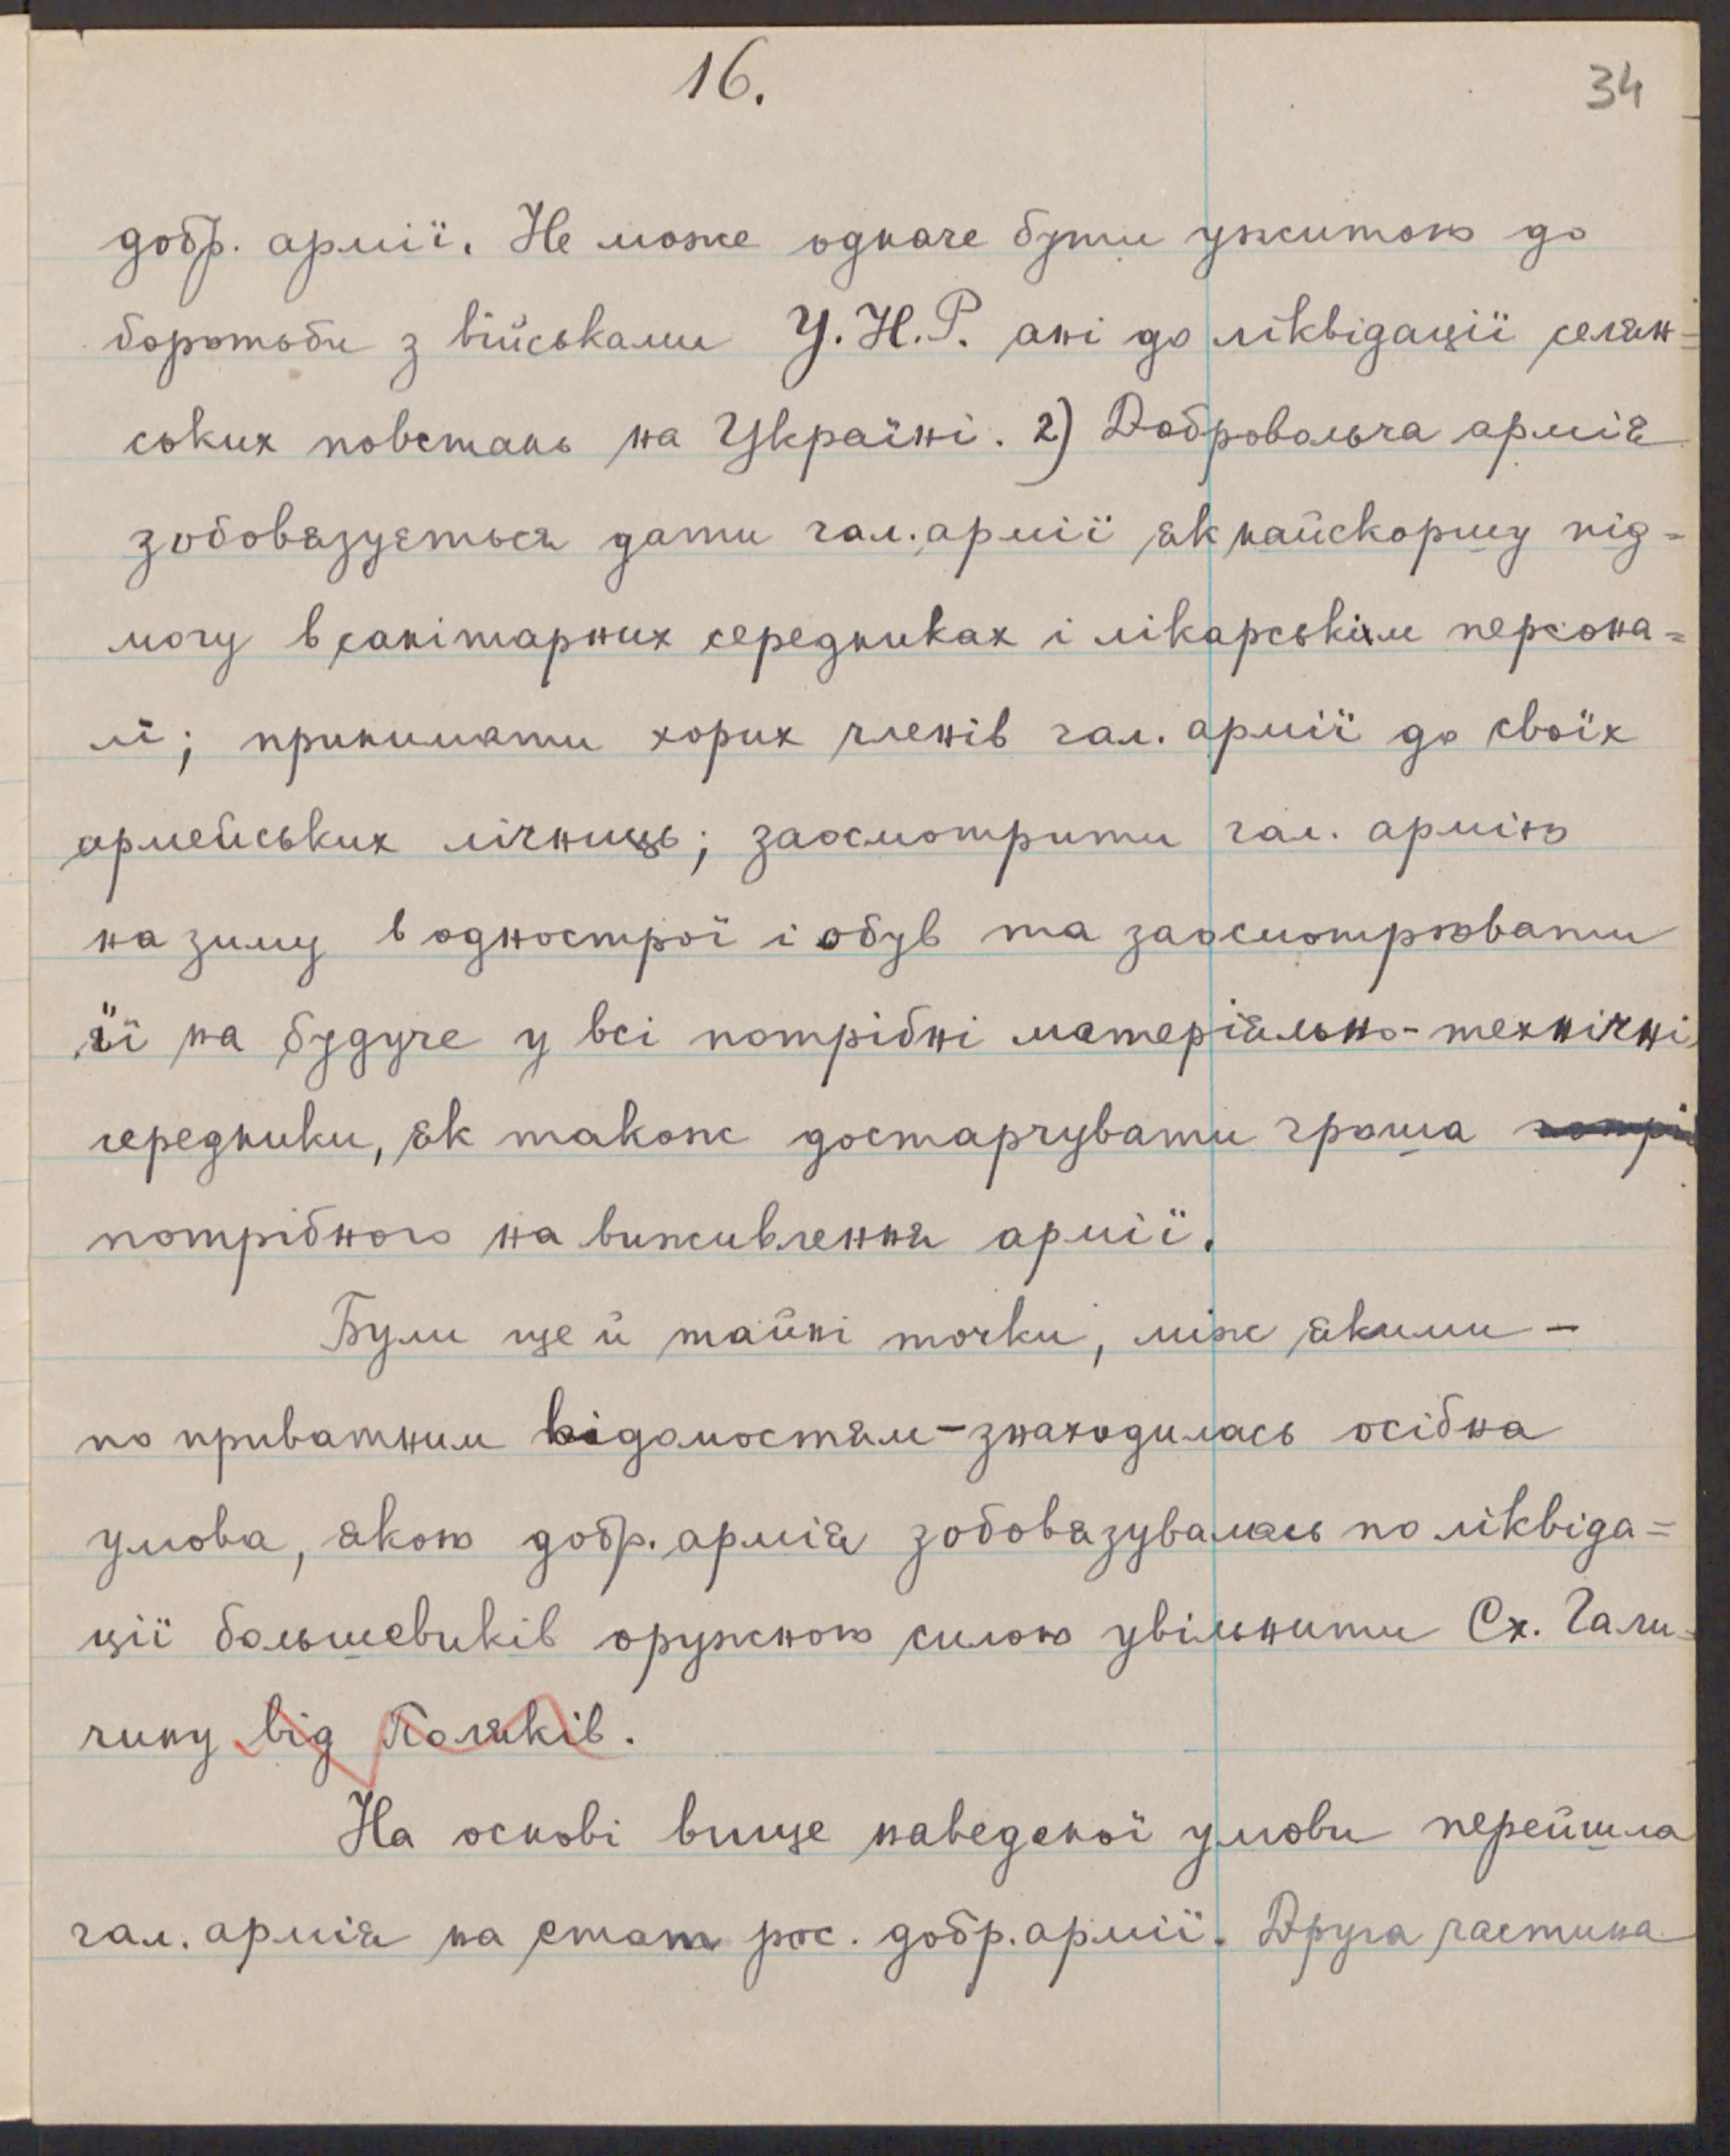 16.
34
добр. армії. Не може одначе бути ужитою до
боротьби з військами У.Н.Р. ані до ліквідації селян=
ських повстань на Україні. 2) Добровольча армія
зобовязується дати гал. армії як найскоршу під=
могу в санітарних середниках і лікарськім персона=
лі; принимати хорих членів гал. армії до своїх
армейських лічниць; заосмотрити гал. армію
на зиму в однострої і обув та заосмотрювати
її на будуче у всі потрібні матеріяльно-технічні
середники, як також достарчувати гроша потрі
потрібного на виживлення армії.
Були ще й тайні точки, між якими –
по приватним відомостям – знаходилась осібна
умова, якою добр. армія зобовязувалась по ліквіда=
ції большевиків оружною силою увільнити Сх. Гали=
чину від Поляків.
На основі вище наведеної умови перейшла
гал. армія на стат рос. добр. армії. Друга частина